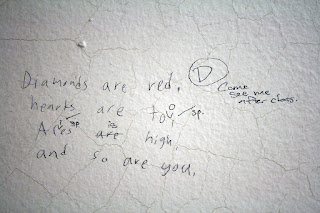 Diamonds are red,
hearts are
sp.
sp. is
are high
and so are you.
D
Come
see me
after class.